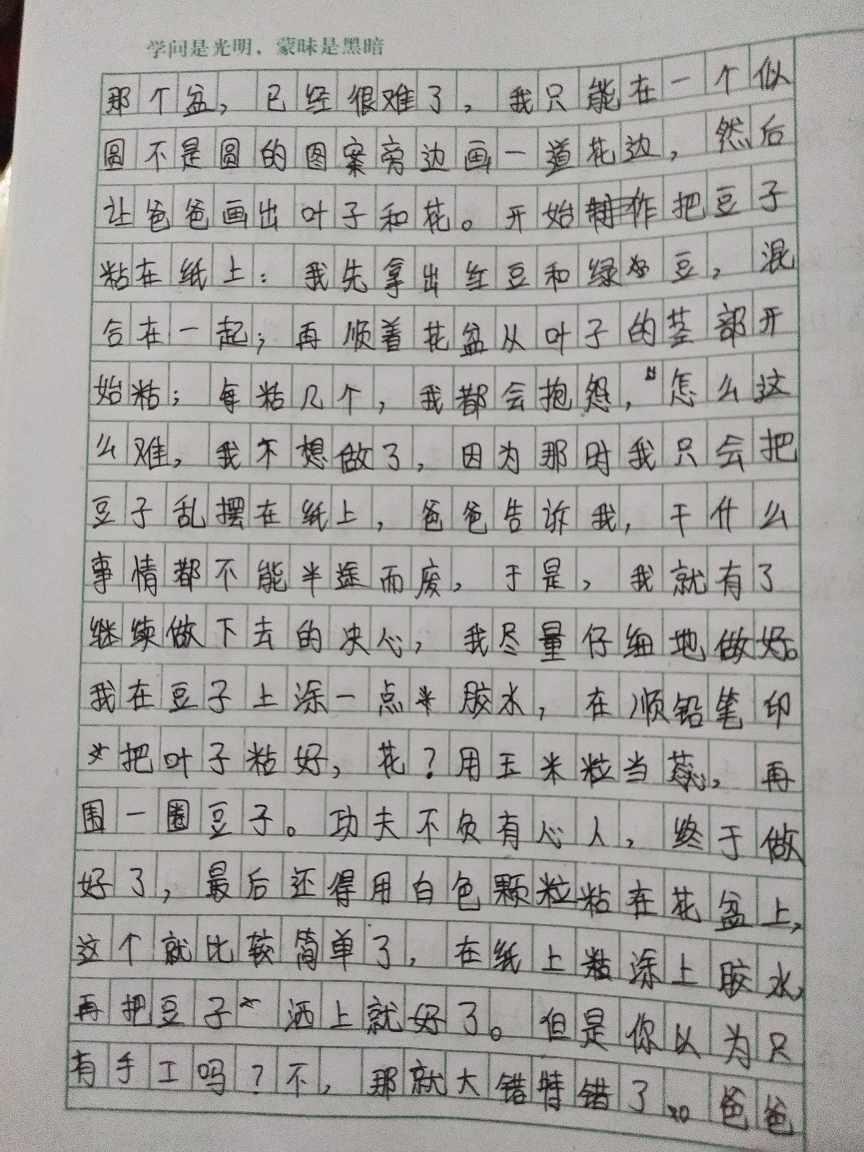 学问是光明，蒙昧是黑暗
那个盆，已经很难了，我只能在一个似
圆不是圆的图案旁边画一道花边，然后
让爸爸画出叶子和花。开始把豆子
粘在纸上：我先拿出红豆和绿豆，混
合在一起；再顺着花盆从叶子的茎部开
始粘；每粘几个，我都会抱怨，“怎么这
么难，我不想做了，因为那时我只会把
豆子乱摆在纸上，爸爸告诉我，干什么
事情都不能半途而废，于是，我就有了
继续做下去的决心，我尽量仔细地做好。
我在豆子上涂一点胶水，在顺铅笔印
把叶子粘好，花？用玉米粒当蕊，再
围一圈豆子。功夫不负有心人，终于做
好了，最后还得用白色颗粒粘在花盆上，
这个就比较简单了，在纸上涂上胶水，
再把豆子洒上就好了。但是你以为只
有手工吗？不，那就大错特错了。爸爸